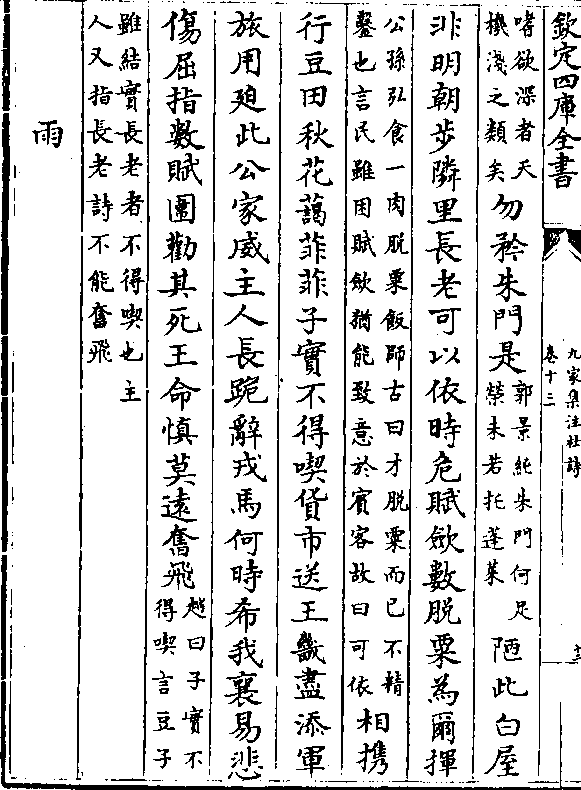 欽定四庫全書
九家集注杜詩
卷十三
嗜欲深者天
機淺之類矣
勿矜朱門是
郭景純朱門何足
榮未若托蓬萊
陋此白屋
非明朝步隣里長老可以依時危賦歛數脫粟為爾揮
公孫弘食一肉脫粟飯師古曰才脫粟而已不精
鑿也言民雖困賦歛猶能致意於賓客故曰可依
相携
行豆田秋花藹菲菲子實不得喫貨市送王畿盡添軍
旅用廹此公家威主人長跪辭戎馬何時希我襄易悲
傷屈指數賊圍勸其死王命慎莫遠奮飛
趙曰子實不
得喫言豆子
雖結實長老者不得喫也主
人又指長老詩不能奮飛
雨